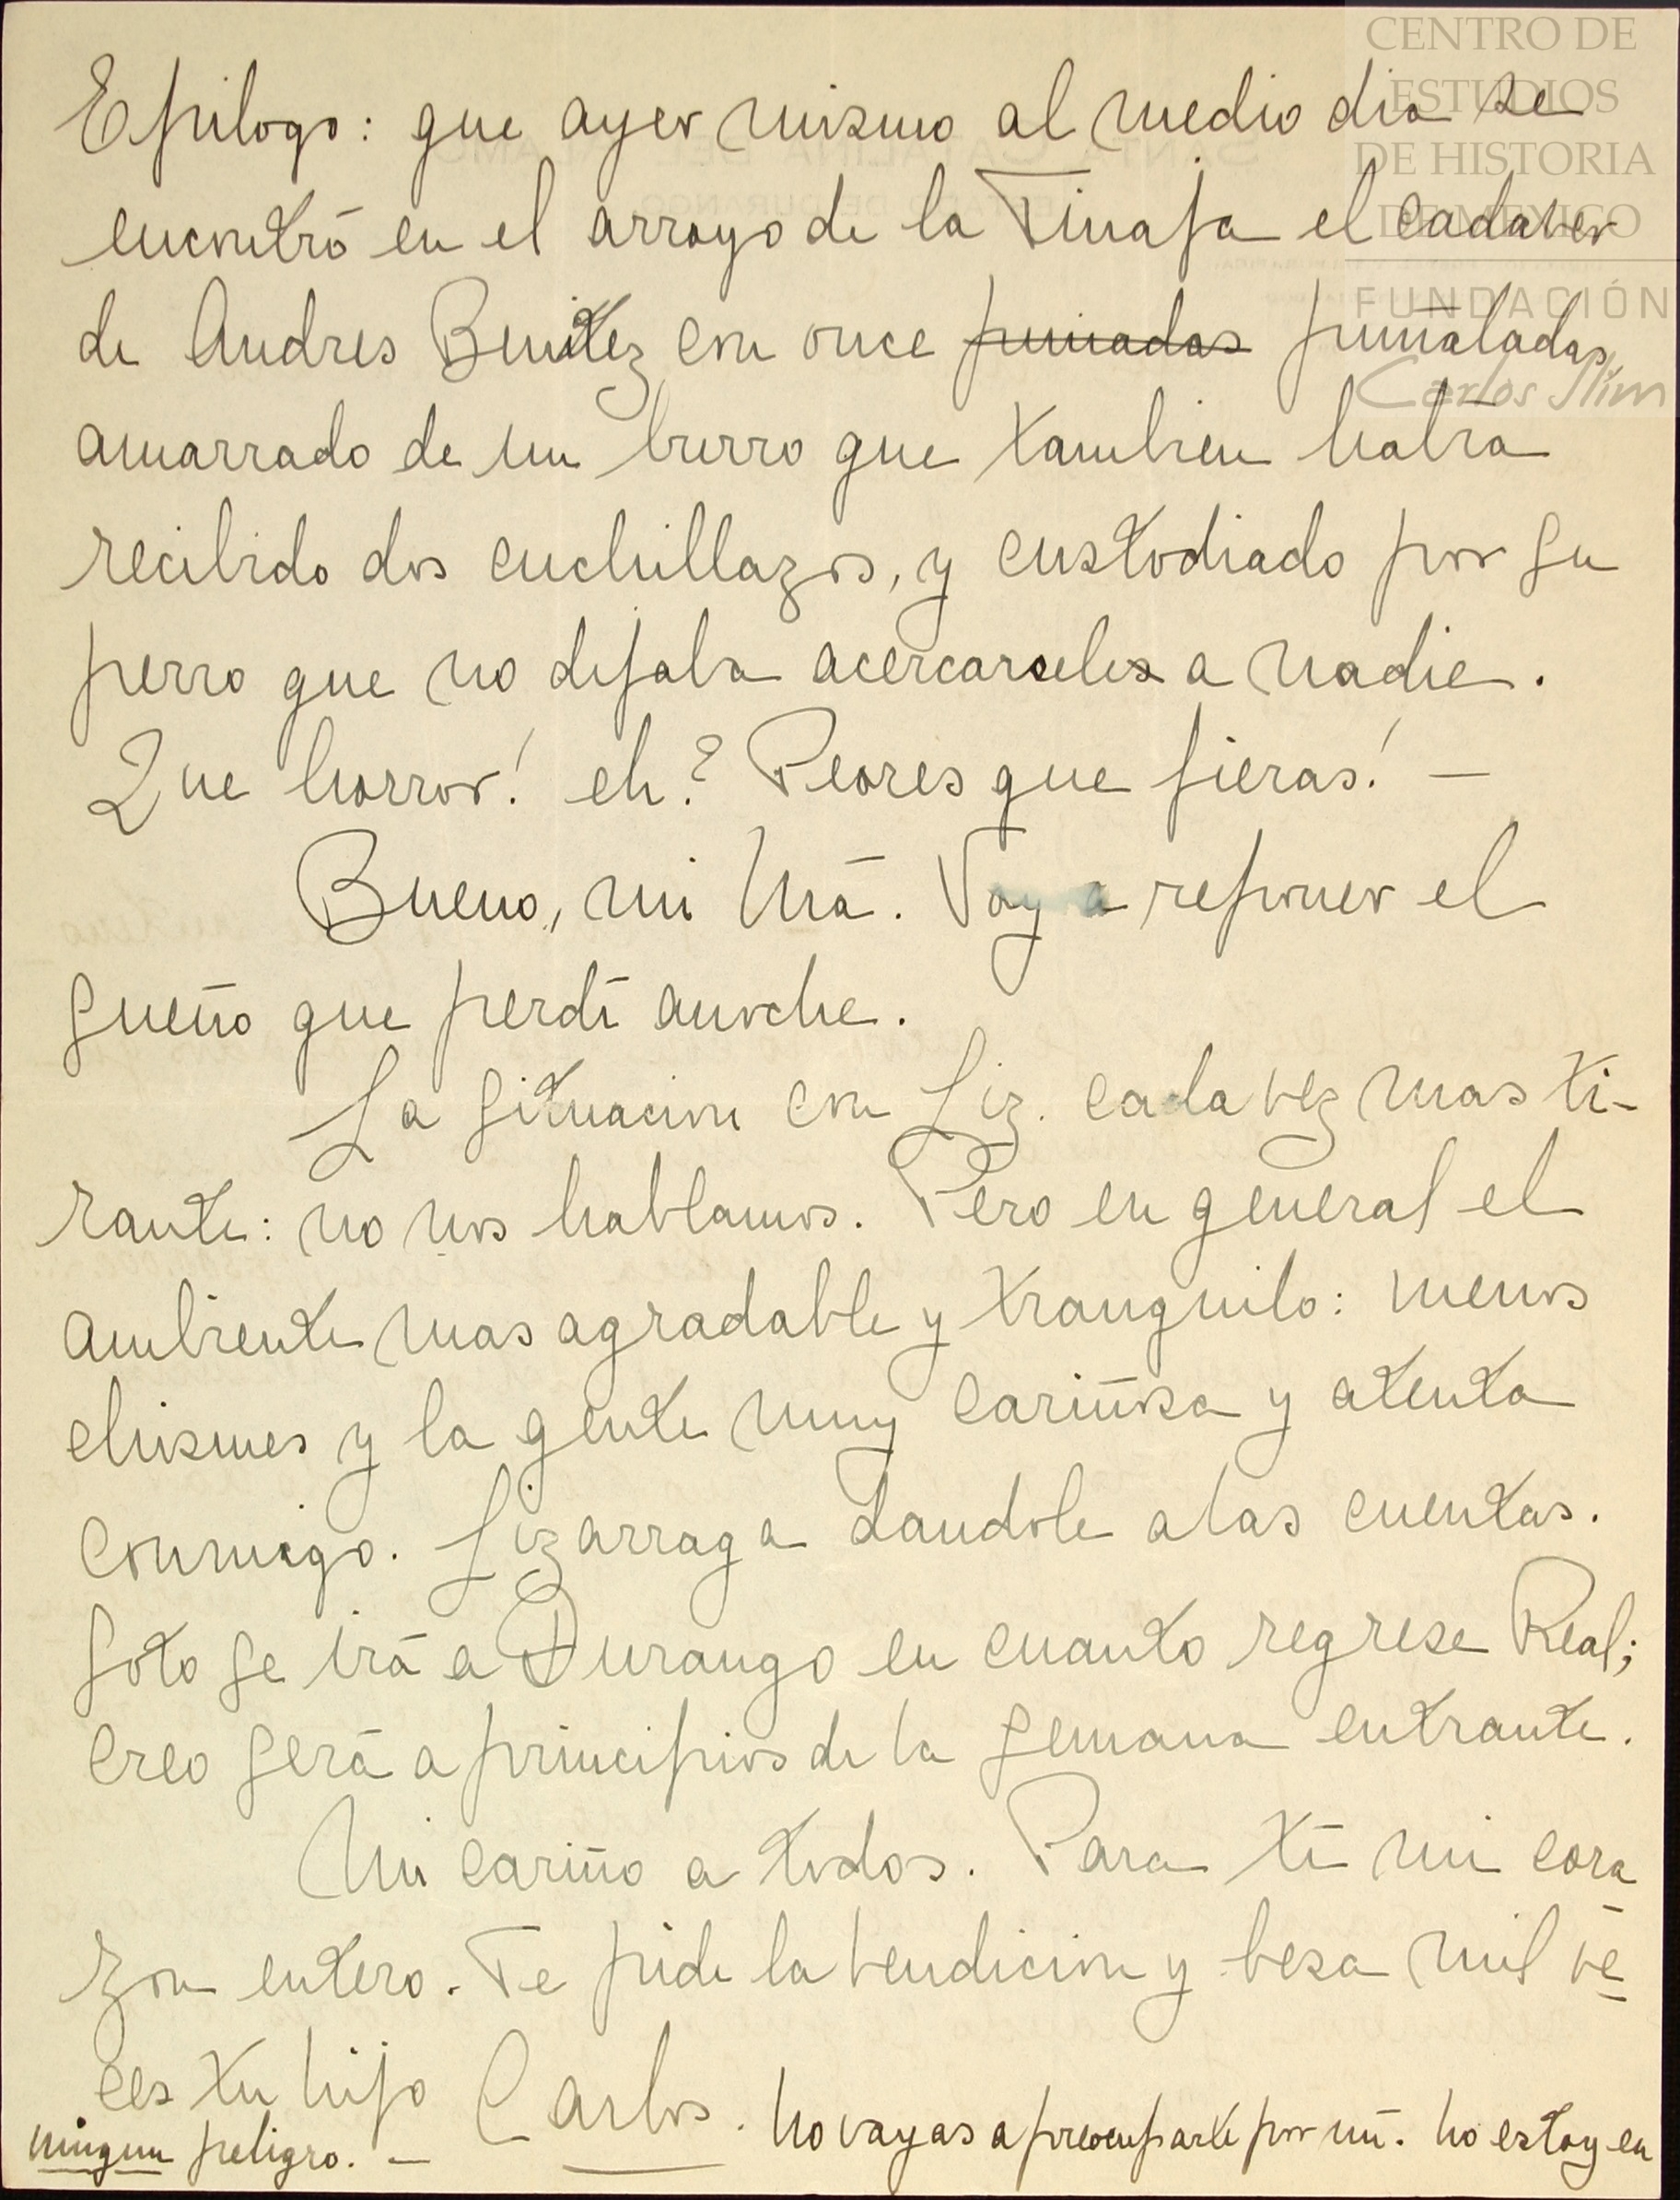 CENTRO DE
ESTUDIOS
DE HISTORIA
DE MEXICO
FUNDACIÓN
Carlos Slim
Epilogo: que ayer mismo al medio dia se
encontró en el arroyo de la Tinaja el cadaver
de Andres Benitez con once puñadas puñaladas,
amarrado de un burro que tambien habia
recibido dos cuchillazos, y custodiado por su
perro que no dejaba acercarseles a nadie.
Que horror! eh? Peores que fieras! —
Bueno, mi Má. Voy a reponer el
sueño que perdí anoche.
La situacion con Liz. cada vez mas ti-
rante: no nos hablamos. Pero en general el
ambiente mas agradable y tranquilo: menos
chismes y la gente muy cariñosa y atenta
conmigo. Lizarraga dandole a las cuentas.
Soto se irá a Durango en cuanto regrese Real;
creo será a principios de la semana entrante.
Mi cariño a todos. Para tí mi cora
zon entero. Te pide la bendicion y besa mil ve
ces tu hijo Carlos. No vayas a preocuparte por mí. No estoy en
ningun peligro. —